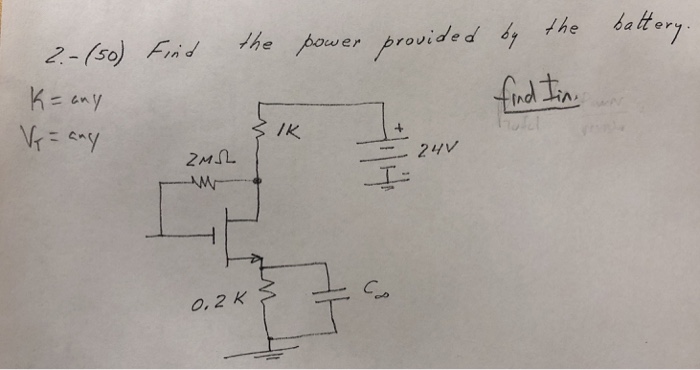 2.-(50) Find the power provided by the battery.
K = any
find Iin.
V_T = any
1K
+
24V
2MΩ
-
0.2K
C∞